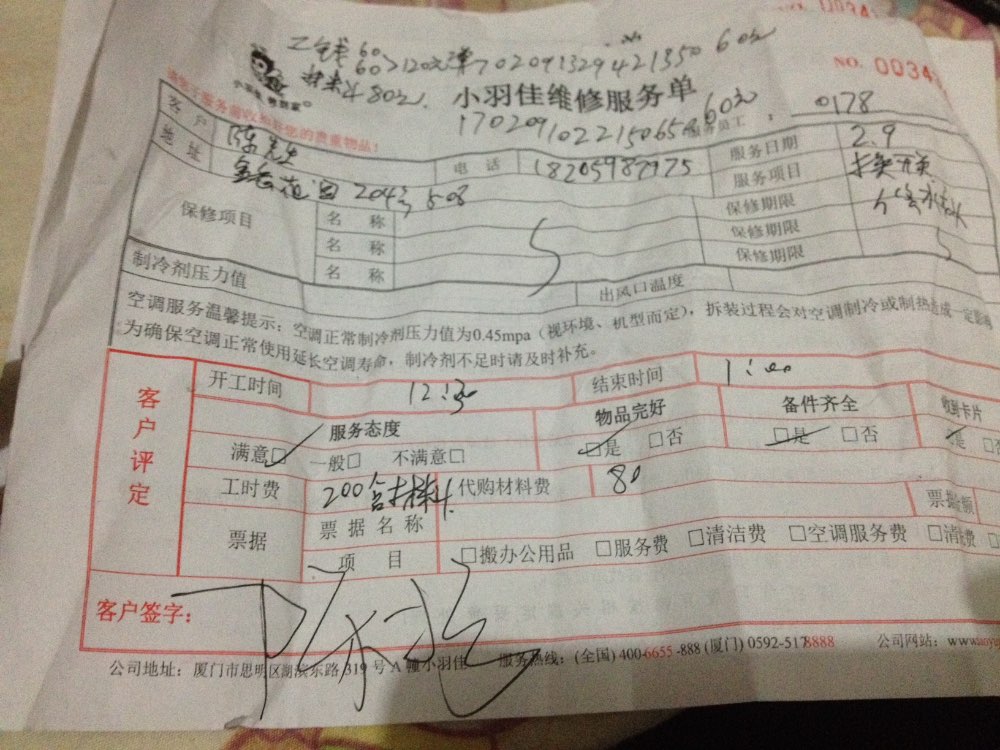 工钱 60 60>120元 单702091329421350 60元
材料80元
小羽佳维修服务单
NO. 0034
1702091022150658 60元
服务员工: 0178
客户 陈先生
电话 18205987975
服务日期 2.9
地址 204号 508
服务项目 换开关
保修项目
名 称
保修期限
名 称
保修期限
名 称
保修期限
制冷剂压力值
出风口温度
空调服务温馨提示:空调正常制冷剂压力值为0.45mpa(视环境、机型而定),拆装过程会对空调制冷或制热造成一定影响
为确保空调正常使用延长空调寿命,制冷剂不足时请及时补充。
客户评定
开工时间 12:30
结束时间 1:00
服务态度 物品完好 备件齐全 收到卡片
满意☑ 一般□ 不满意□ ☑是 □否 ☑是 □否 ☑是
工时费 200含材料 代购材料费 80
票据 票据名称 票据金额
项 目 □搬办公用品 □服务费 □清洁费 □空调服务费 □清洗费
客户签字:
公司地址:厦门市思明区湖滨东路 319 号 A 幢小羽佳 服务热线:(全国) 400-6655-888 (厦门) 0592-5178888 公司网站: